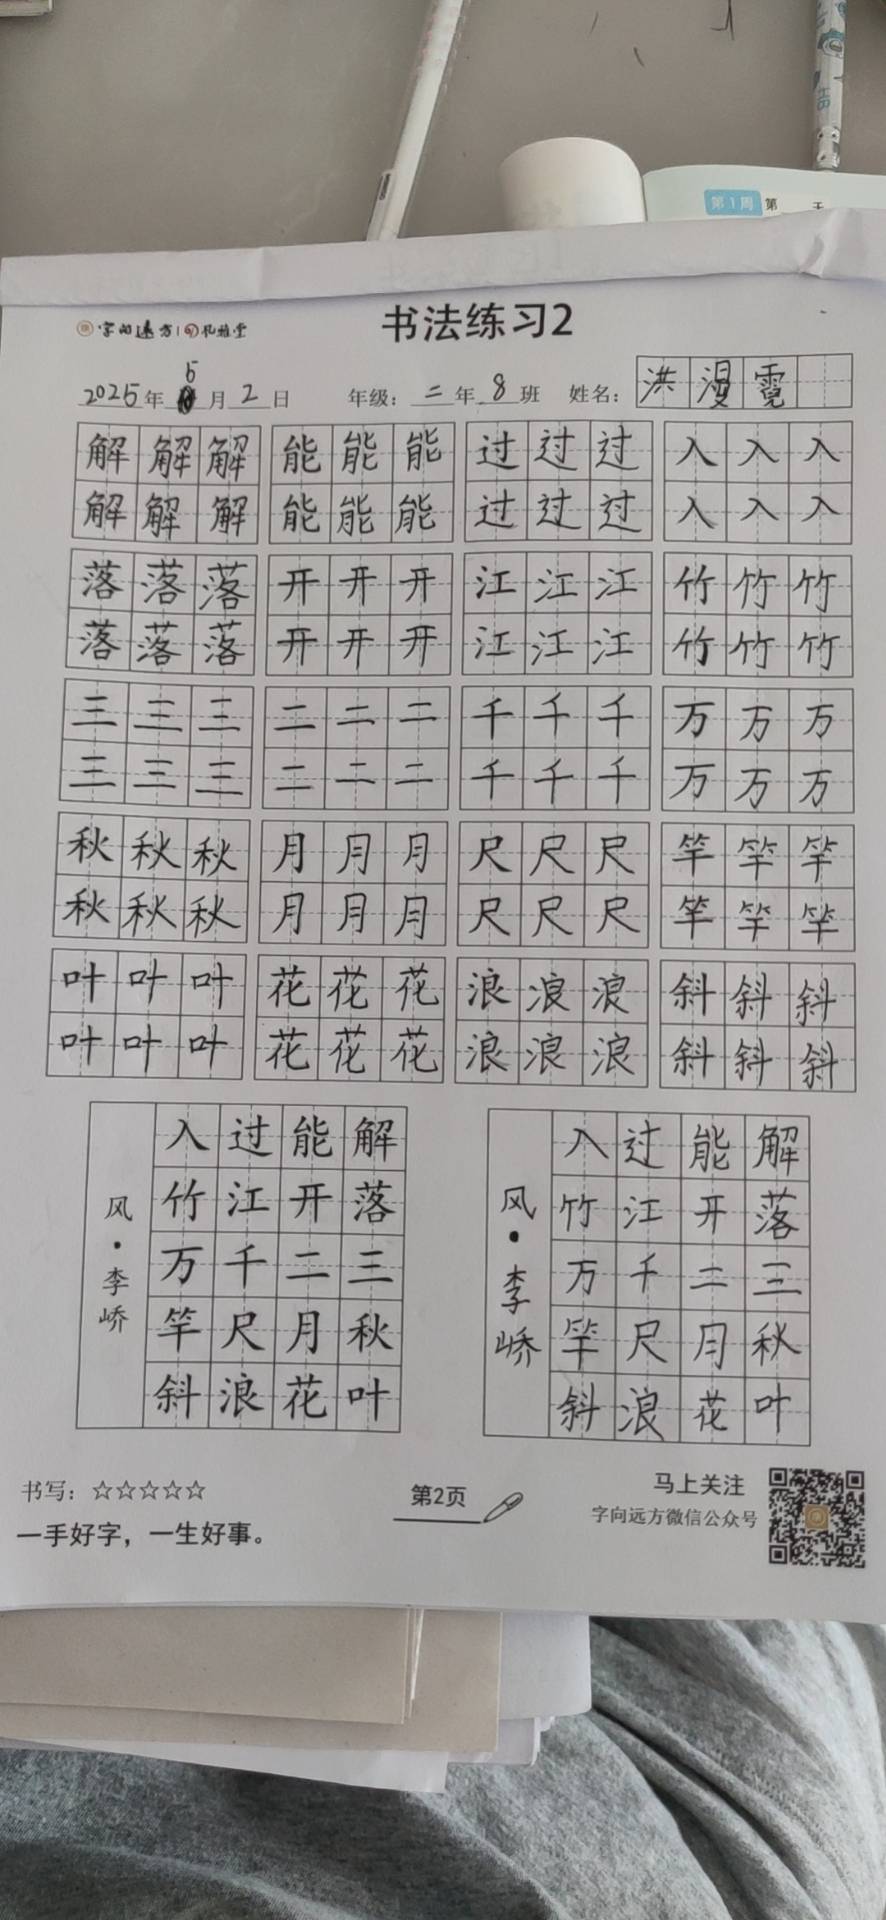 第1周 第 天
字向远方 孔雅堂
书法练习2
2025年5月2日 年级：二年8班 姓名：洪漫霓
解解解 能能能 过过过 入入入
解解解 能能能 过过过 入入入
落落落 开开开 江江江 竹竹竹
落落落 开开开 江江江 竹竹竹
三三三 二二二 千千千 万万万
三三三 二二二 千千千 万万万
秋秋秋 月月月 尺尺尺 竿竿竿
秋秋秋 月月月 尺尺尺 竿竿竿
叶叶叶 花花花 浪浪浪 斜斜斜
叶叶叶 花花花 浪浪浪 斜斜斜
风·李峤
解落三秋叶
能开二月花
过江千尺浪
入竹万竿斜
风·李峤
解落三秋叶
能开二月花
过江千尺浪
入竹万竿斜
书写：☆☆☆☆☆
一手好字，一生好事。
第2页
马上关注
字向远方微信公众号